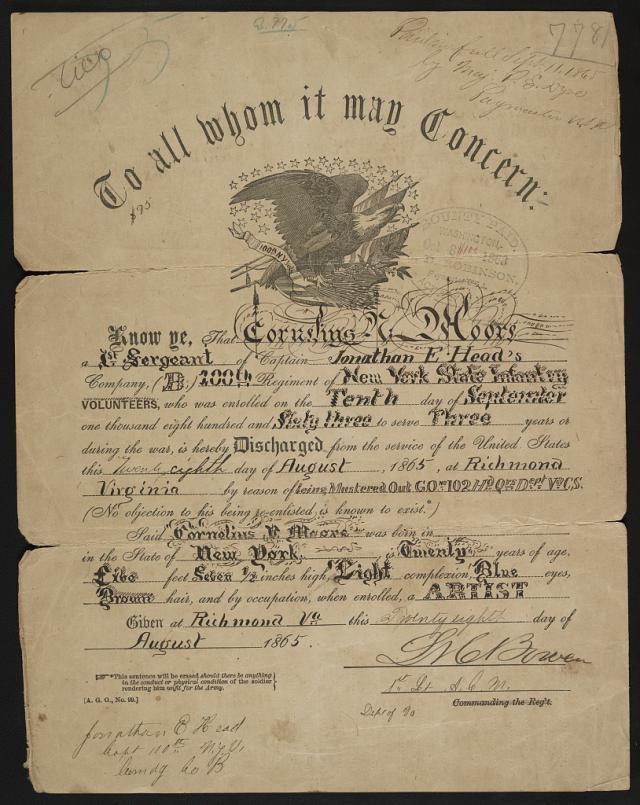 7781
Paid in full Sept. 11. 1865
by Maj.
Paymaster U.S.A.
To all whom it may Concern:
$75
100th N.Y.
BOUNTY PAID
WASHINGTON
ROBINSON,
Know ye, That Cornelius N. Moore
a 1st Sergeant of Captain Jonathan E. Head's
Company, (B,) 100th Regiment of New York State Infantry
VOLUNTEERS, who was enrolled on the Tenth day of September
one thousand eight hundred and Sixty three to serve Three years or
during the war, is hereby Discharged from the service of the United States
this Twenty eighth day of August, 1865, at Richmond
Virginia by reason of being Mustered Out G.O. No 102 Hd Qrs Dept Va C.S.
(No objection to his being re-enlisted is known to exist.*)
Said Cornelius N. Moore was born in
in the State of New York, is Twenty years of age,
Five feet Seven 1/2 inches high, Light complexion, Blue eyes,
Brown hair, and by occupation, when enrolled, a ARTIST
Given at Richmond Va this Twenty eight day of
August 1865.
Bowen
1st Lt. A. C. M.
Commanding the Reg't.
Dept of Va
*This sentence will be erased should there be anything
in the conduct or physical condition of the soldier
rendering him unfit for the Army.
[A. G. O., No. 99.]
Jonathan E Head
Capt 100th N.Y. V.
Comdg Co B